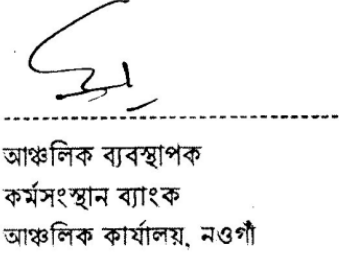 আঞ্চলিক ব্যবস্থাপক
কর্মসংস্থান ব্যাংক
আঞ্চলিক কার্যালয়, নওগাঁ